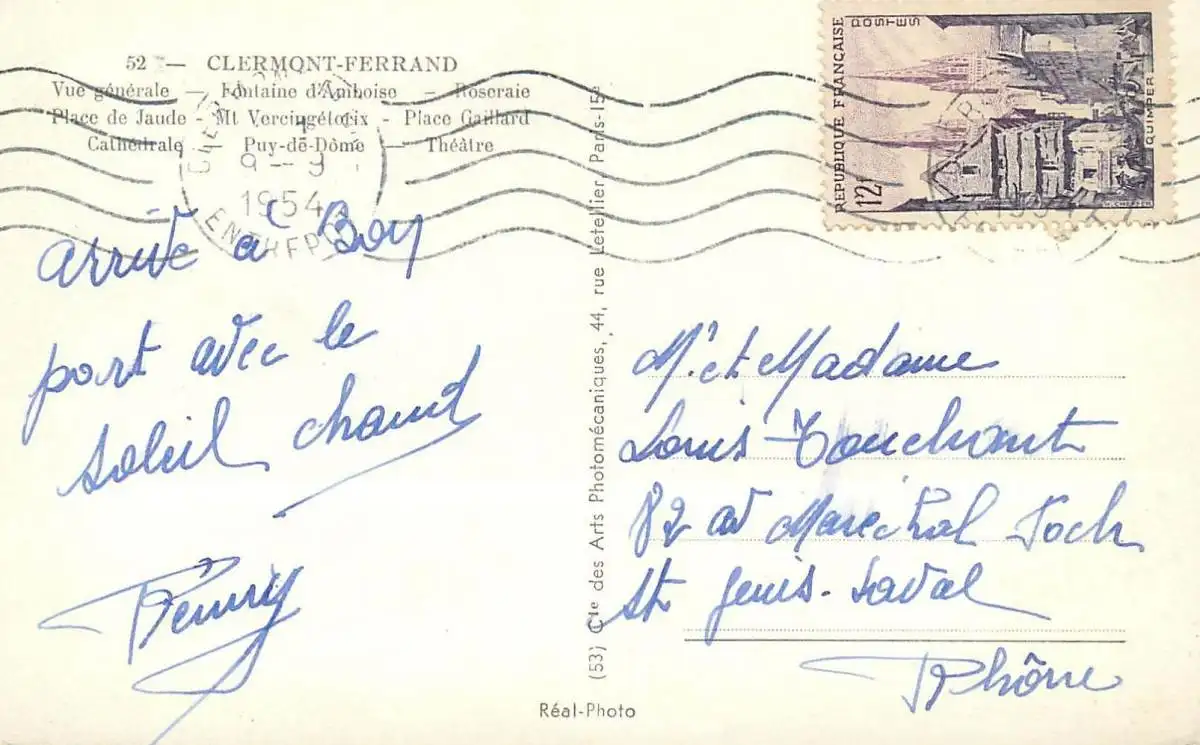 52 — CLERMONT-FERRAND
Vue générale — Fontaine d'Amboise — Roseraie
Place de Jaude - Mt Vercingétorix - Place Gaillard
Cathédrale — Puy-de-Dôme — Théâtre
9 - 9
1954
ENTREPOT
POSTES
REPUBLIQUE FRANÇAISE
12f
QUIMPER
arrivé à Bon
port avec le
soleil chaud
(53) Cie des Arts Photomécaniques, 44, rue Letellier, Paris-15e
M. et Madame
Louis Touchant
82 av Marechal Foch
St Genis-Laval
Rhône
Réal-Photo